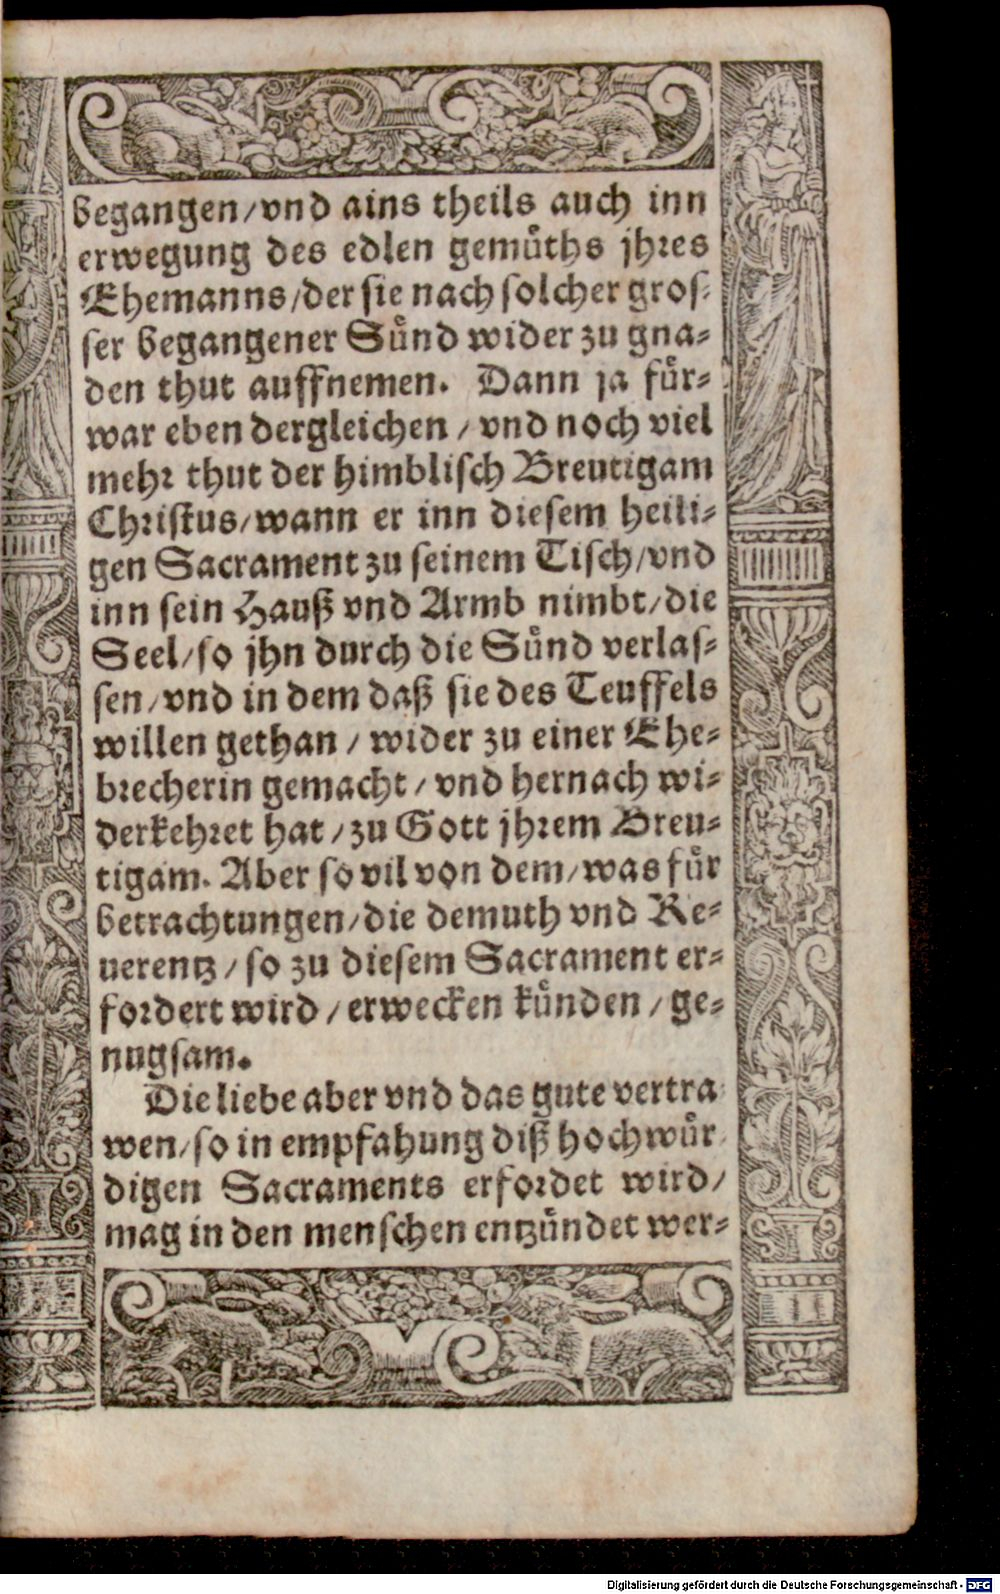 begangen/vnd ains theils auch inn
erwegung des edlen gemuͤths jhres
Ehemanns/der sie nach solcher gros-
ser begangener Suͤnd wider zu gna-
den thut auffnemen. Dann ja fuͤr-
war eben dergleichen/vnd noch viel
mehr thut der himblisch Breutigam
Christus/wann er inn diesem heili-
gen Sacrament zu seinem Tisch/vnd
inn sein Hauß vnd Armb nimbt/die
Seel/so jhn durch die Suͤnd verlas-
sen/vnd in dem daß sie des Teuffels
willen gethan/wider zu einer Ehe-
brecherin gemacht/vnd hernach wi-
derkehret hat/zu Gott jhrem Breu-
tigam. Aber so vil von dem/was fuͤr
betrachtungen/die demuth vnd Re-
uerentz/so zu diesem Sacrament er-
fordert wird/erwecken kuͤnden/ge-
nugsam.
Die liebe aber vnd das gute vertra-
wen/so in empfahung diß hochwuͤr-
digen Sacraments erfordet wird/
mag in den menschen entzuͤndet wer-
Digitalisierung gefördert durch die Deutsche Forschungsgemeinschaft - DFG